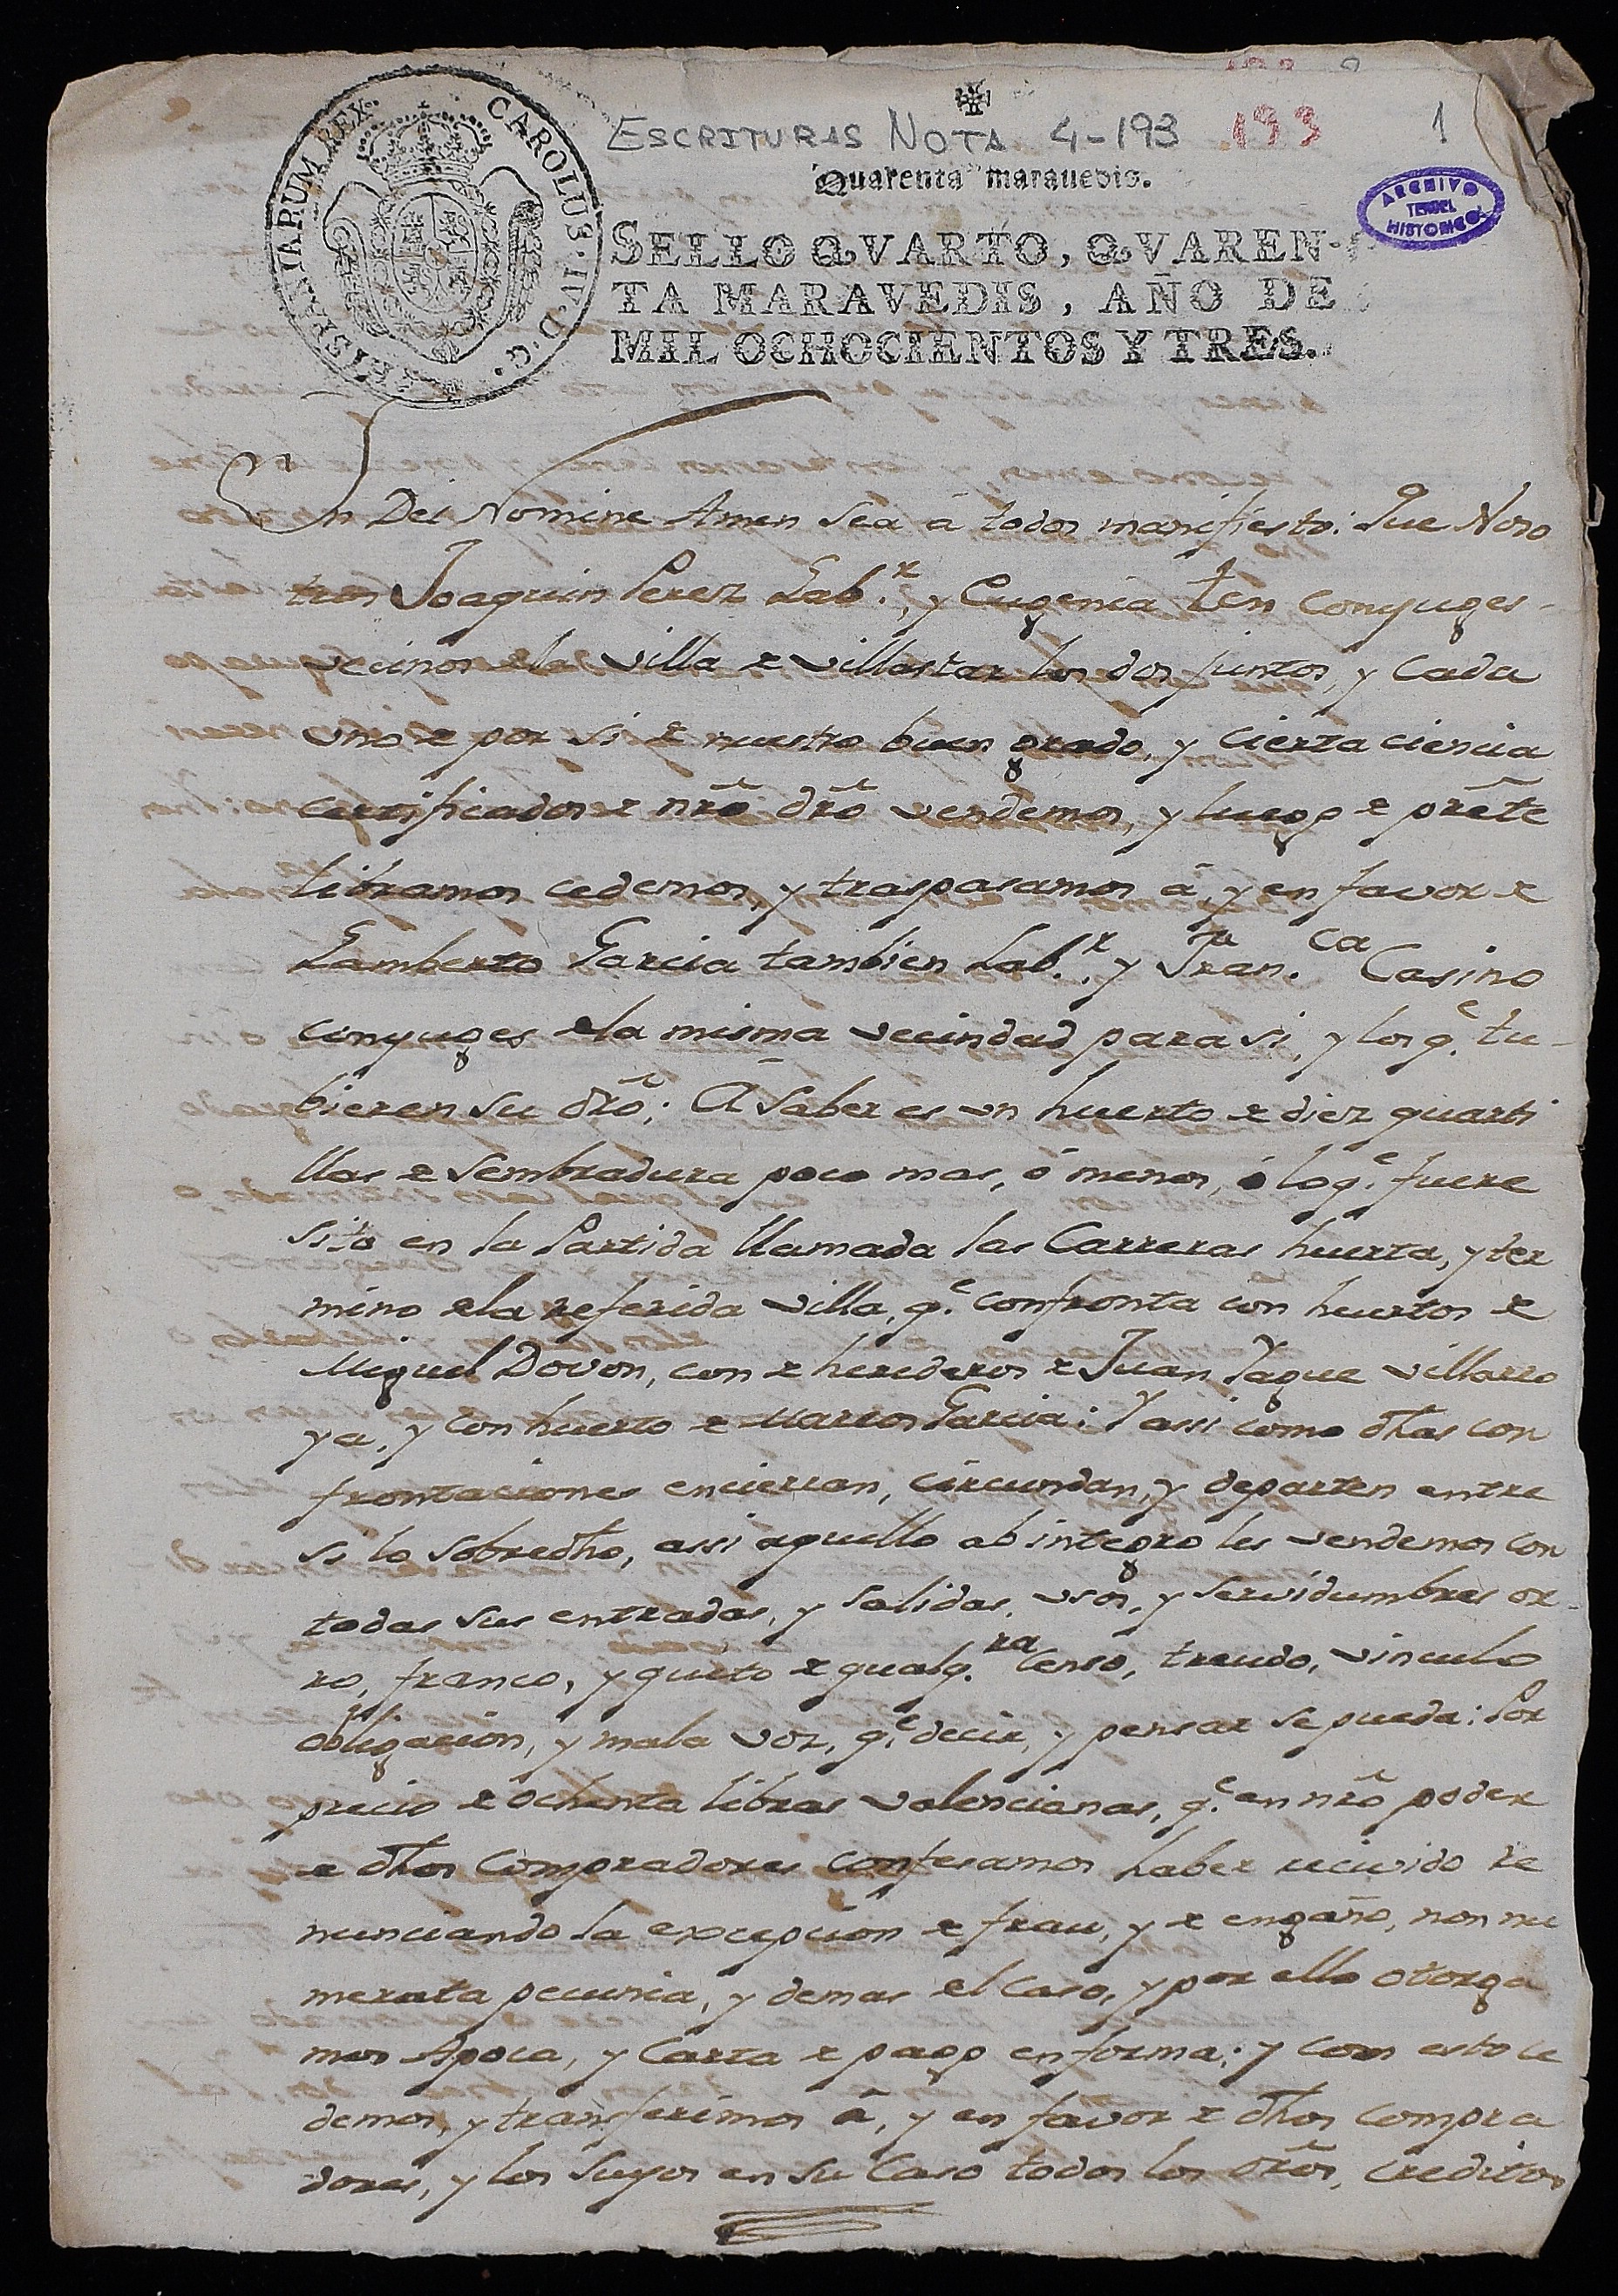 ESCRITURAS NOTA 4-193 193 1
Quarenta marauedis.
CAROLUS·IV·D·G· HISPANIARUM REX
ARCHIVO
TERUEL
HISTORICO
SELLO QVARTO, QVAREN-
TA MARAVEDIS, AÑO DE
MIL OCHOCIENTOS Y TRES.
En Dei Nomine Amen Sea á todos manifiesto: Que Noso
tros Joaquin Perez Lab.r, y Eugenia Ten Conyuges
vecinos de la Villa de Villastar los dos juntos, y Cada
uno de por si de nuestro buen grado, y cierta ciencia
certificados de nr̃o dr̃o vendemos, y luego de pr̃ete
libramos cedemos, y traspasamos á, y en favor de
Lamberto Garcia tambien Lab.r y Fran.ca Casino
conyuges de la misma vecindad para si, y los q.e tu-
bieren su dr̃o; A Saber es un huerto de diez quarti
llas de Sembradura poco mas, ó menos, ó lo q.e fuere
sito en la Partida llamada las Carreras huerta, y ter
mino de la referida Villa, q.e confronta con huertos de
Miguel Dovon, con de herederos de Juan Yague Villarro
ya, y con huerto de Marcos Garcia: Y assi como dhas con
frontaciones encierran, circundan, y departen entre
si lo Sobredho, assi aquello ab integro les vendemos con
todas sus entradas, y salidas, usos, y servidumbres or-
ro, franco, y quito de qualq.ra Censo, treudo, vinculo
obligacion, y mala voz, q.e decir, y pensar se pueda: Por
precio de ochenta libras valencianas, q.e en nr̃o poder
de dhos Compradores confesamos haber recivido re
nunciando la excepcion de frau, y de engaño, non nu
merata pecunia, y demas del Caso, y por ello otorga
mos Apoca, y Carta de pago en forma; y con esto ce
demos, y transferimos á, y en favor de dhos compra
dores, y los Suyos en su Caso todos los dr̃os, creditos